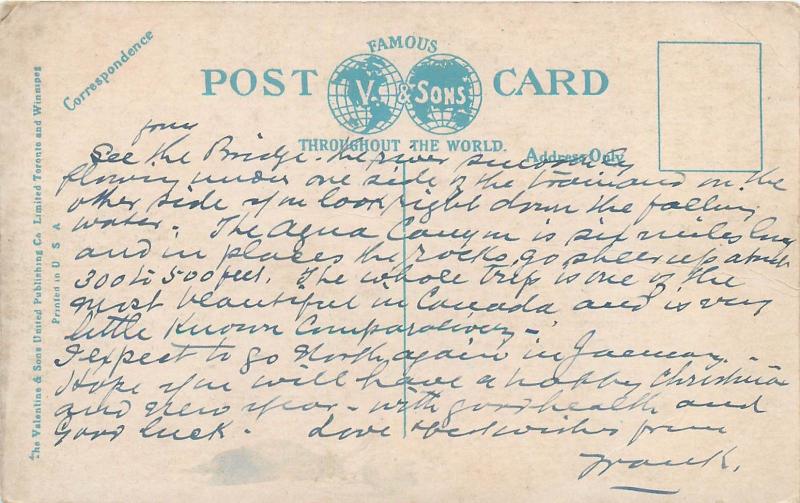 Correspondence
FAMOUS
POST CARD
V. & SONS
THROUGHOUT THE WORLD.
Address Only
The Valentine & Sons United Publishing Co. Limited Toronto and Winnipeg
Printed in U S A
from
See the Bridge. The river
flowing under one side of the train and on the
other side you look right down the falling
water. The Agua Canyon is six miles long
and in places the rocks go sheer up about
300 to 500 feet. The whole trip is one of the
most beautiful in Canada and is very
little known comparatively -
I expect to go North again in January.
Hope you will have a happy Christmas
and New Year - with good health and
good luck. Love & best wishes from
Frank.